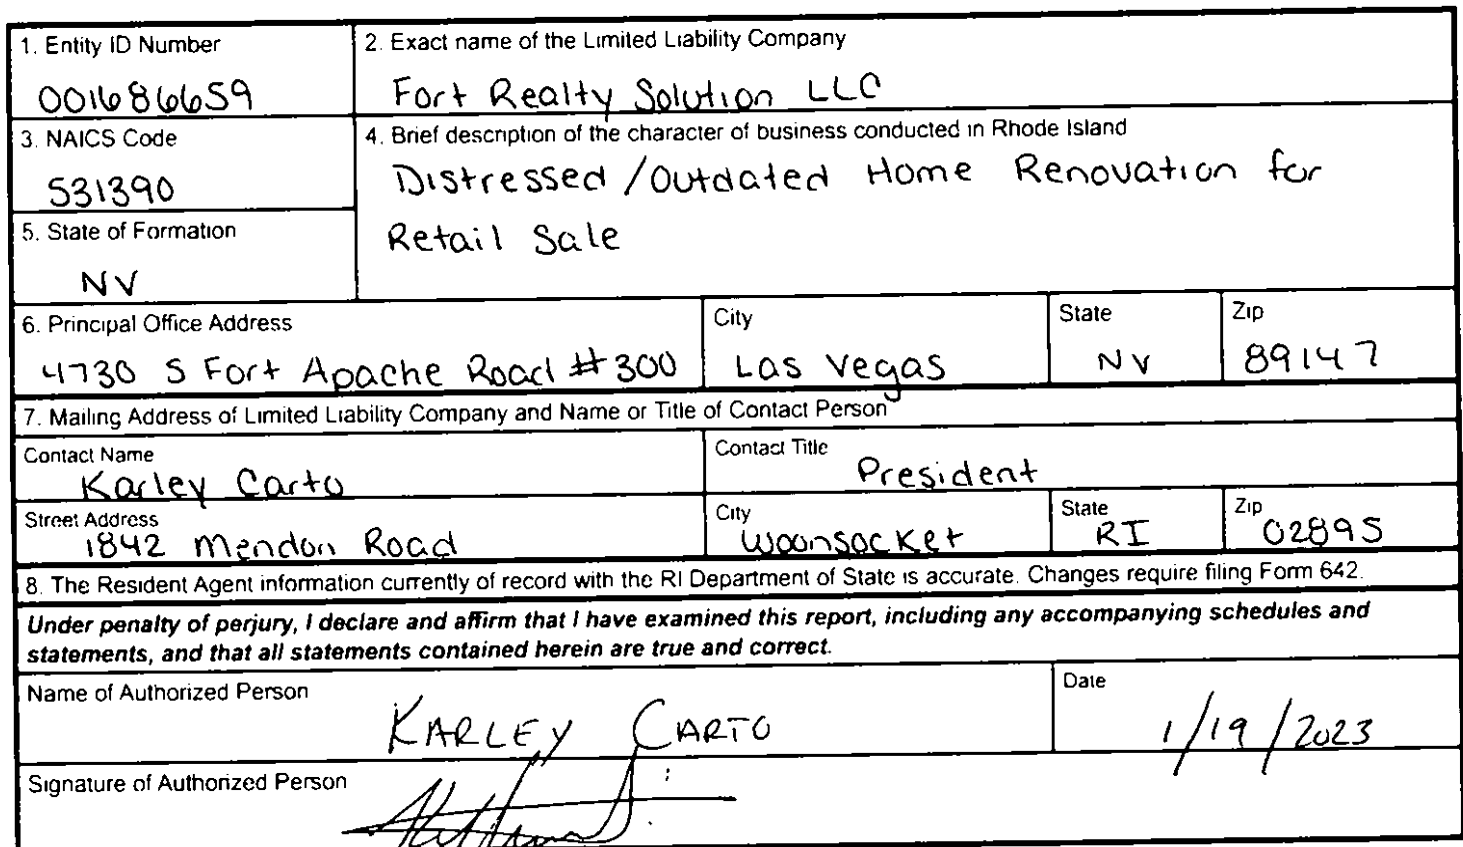 1. Entity ID Number
001686659
2. Exact name of the Limited Liability Company
Fort Realty Solution LLC
3. NAICS Code
531390
4. Brief description of the character of business conducted in Rhode Island
Distressed / Outdated Home Renovation for
Retail Sale
5. State of Formation
NV
6. Principal Office Address
4730 S Fort Apache Road #300
City
Las Vegas
State
NV
Zip
89147
7. Mailing Address of Limited Liability Company and Name or Title of Contact Person
Contact Name
Karley Carto
Contact Title
President
Street Address
1842 Mendon Road
City
Woonsocket
State
RI
Zip
02895
8. The Resident Agent information currently of record with the RI Department of State is accurate. Changes require filing Form 642.
Under penalty of perjury, I declare and affirm that I have examined this report, including any accompanying schedules and
statements, and that all statements contained herein are true and correct.
Name of Authorized Person
KARLEY CARTO
Date
1/19/2023
Signature of Authorized Person